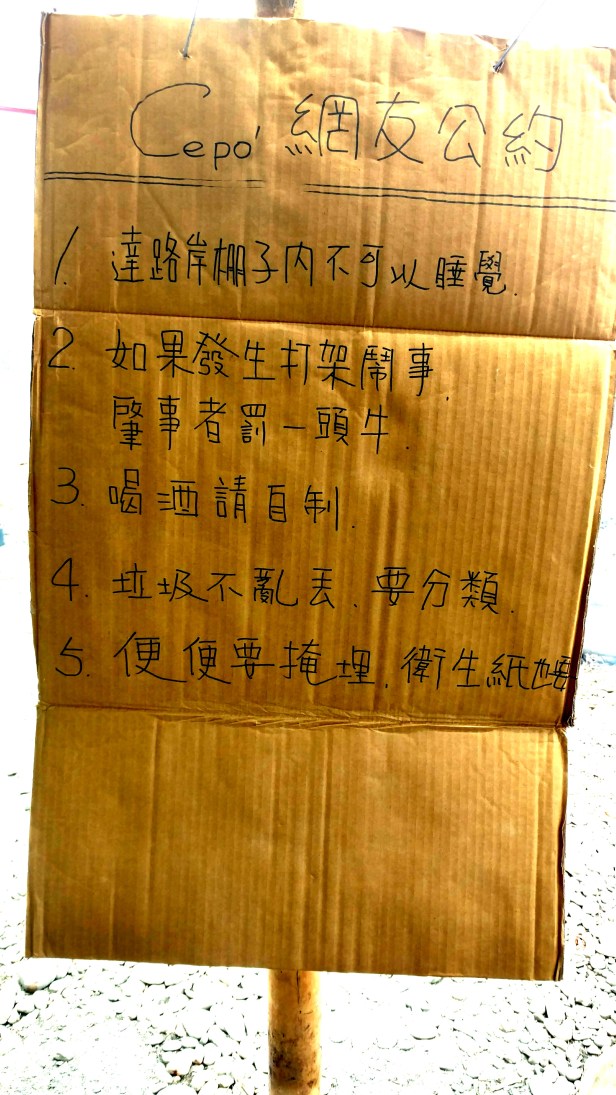 Cepo' 網友公約
1. 達路岸棚子内不可以睡覺.
2. 如果發生打架鬧事,
肇事者罰一頭牛.
3. 喝酒請自制.
4. 垃圾不亂丟、要分類.
5. 便便要掩埋, 衛生紙也要